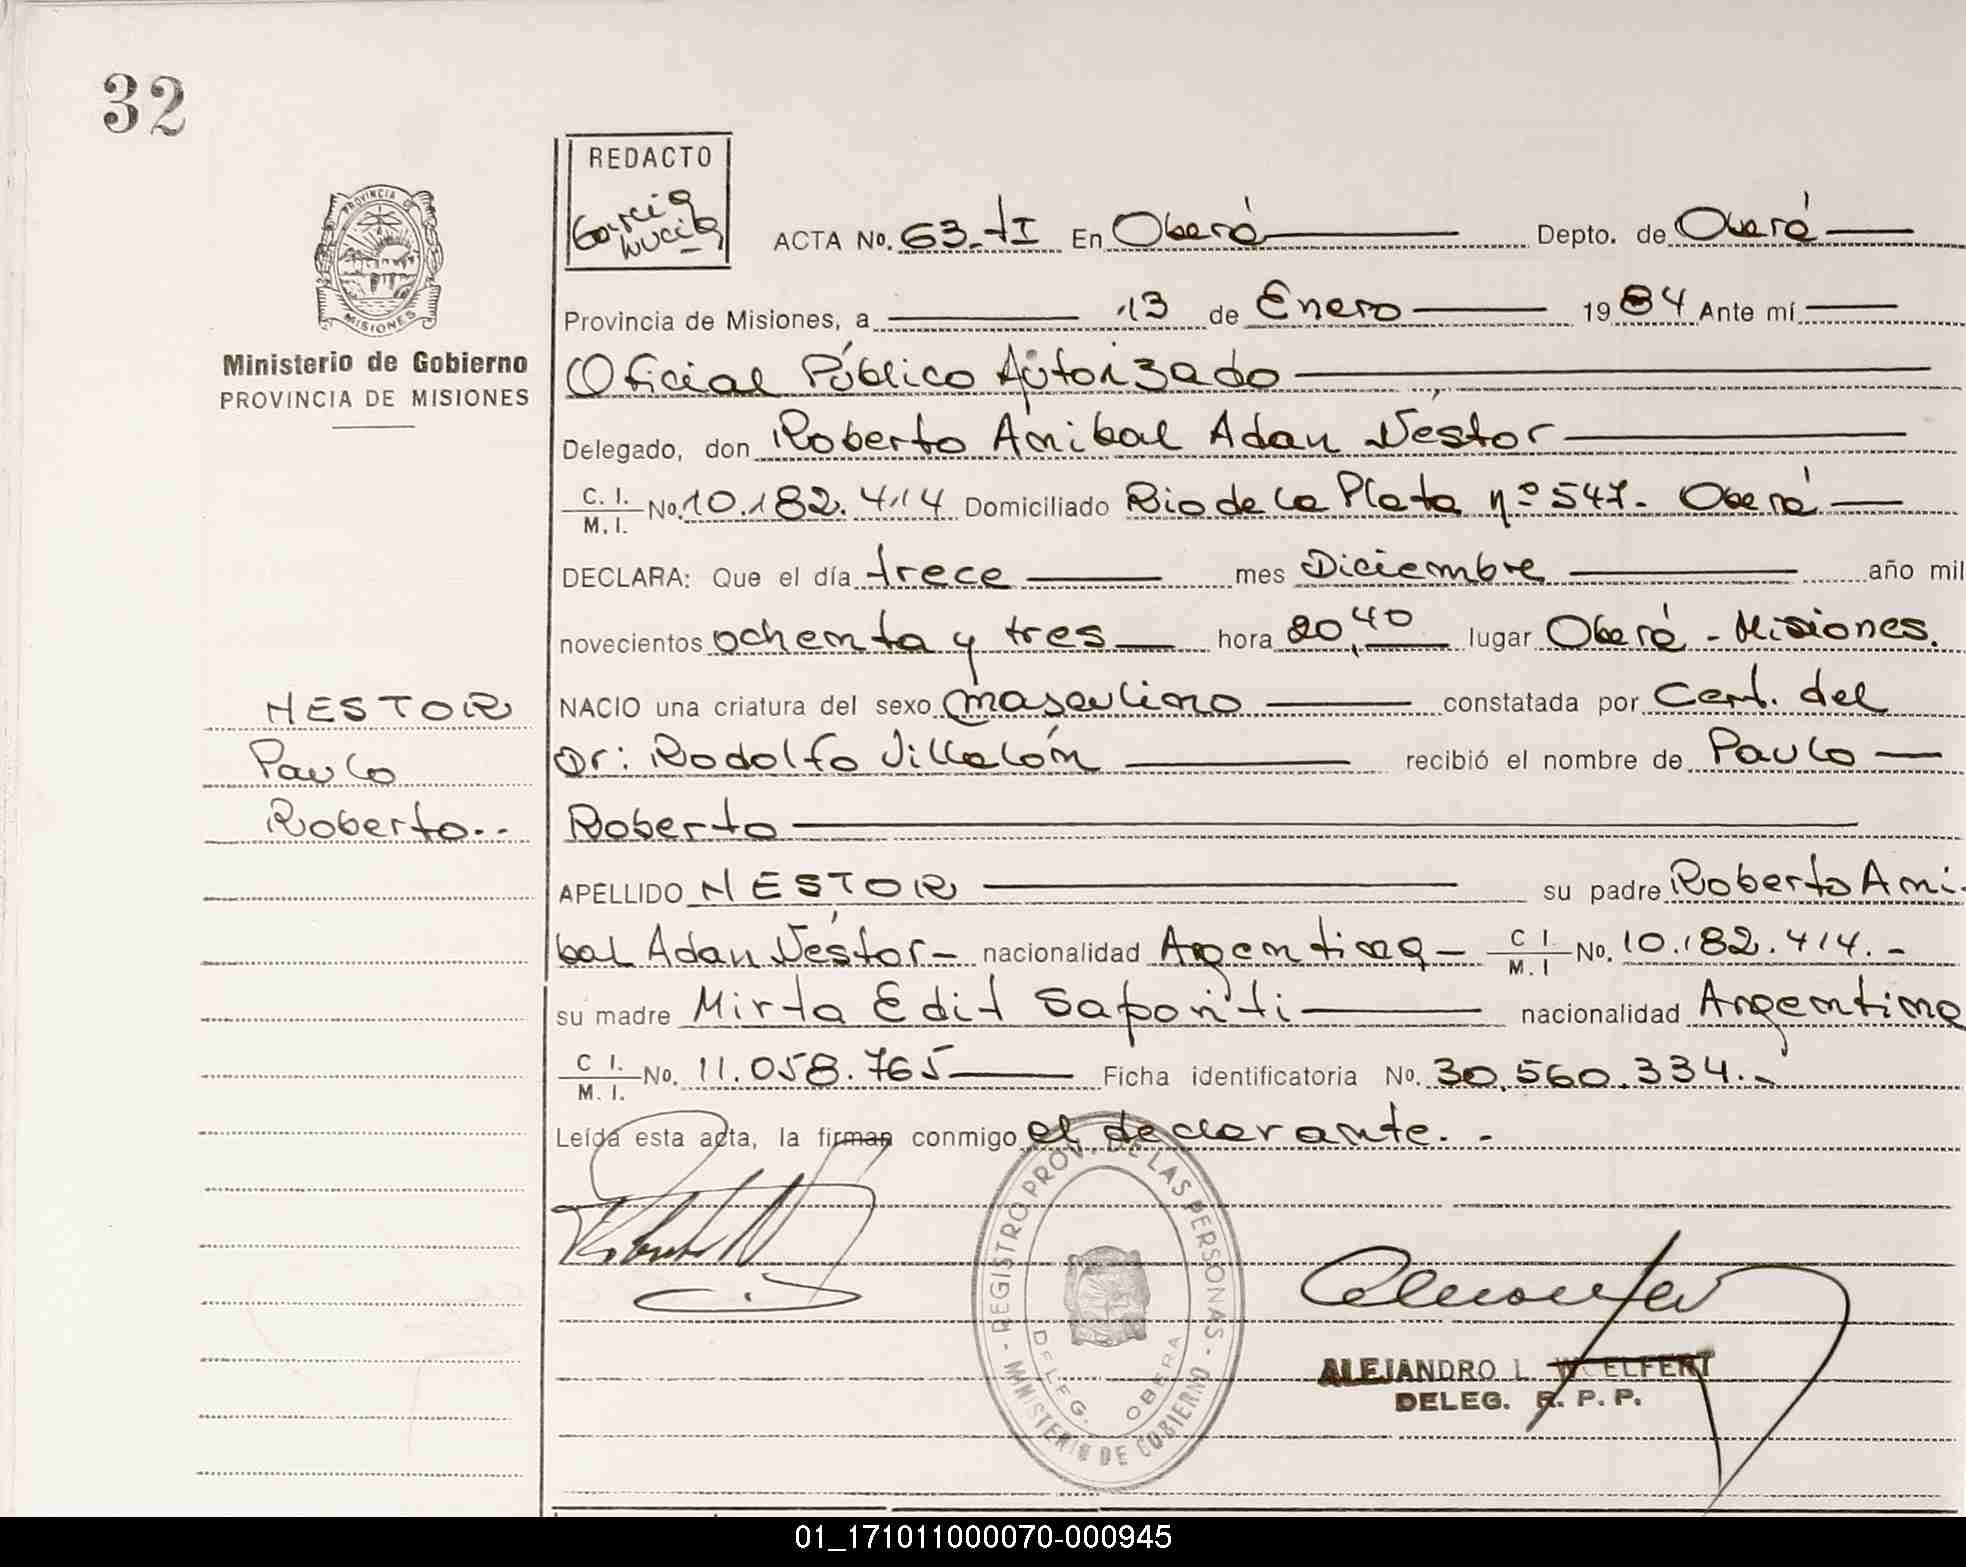 32
REDACTO
Garcia
Lucia
PROVINCIA DE
MISIONES
Ministerio de Gobierno
PROVINCIA DE MISIONES
ACTA No. 63-tI En Oberá Depto. de Oberá
Provincia de Misiones, a 13 de Enero 1984 Ante mí
Oficial Público Autorizado
Delegado, don Roberto Anibal Adan Néstor
C. I. M. I. No. 10.182.414 Domiciliado Rio de la Plata nº 547- Oberá
DECLARA: Que el día trece mes Diciembre año mil
novecientos ochenta y tres hora 20,40 lugar Oberá - Misiones.
NACIO una criatura del sexo masculino constatada por Cert. del
Dr: Rodolfo Villalón recibió el nombre de Paulo
Roberto
APELLIDO NESTOR su padre Roberto Ani-
bal Adan Néstor- nacionalidad Argentina- C I. M. I No. 10.182.414.-
su madre Mirta Edit Saporiti nacionalidad Argentina
C I. M. I. No. 11.058.765 Ficha identificatoria No. 30.560.334.-
Leída esta acta, la firman conmigo el declarante.-
NESTOR
Paulo
Roberto.-
- REGISTRO PROV. DE LAS PERSONAS -
MINISTERIO DE GOBIERNO
DELEG. OBERA
ALEJANDRO L. WELFERT
DELEG. R. P. P.
01_171011000070-000945